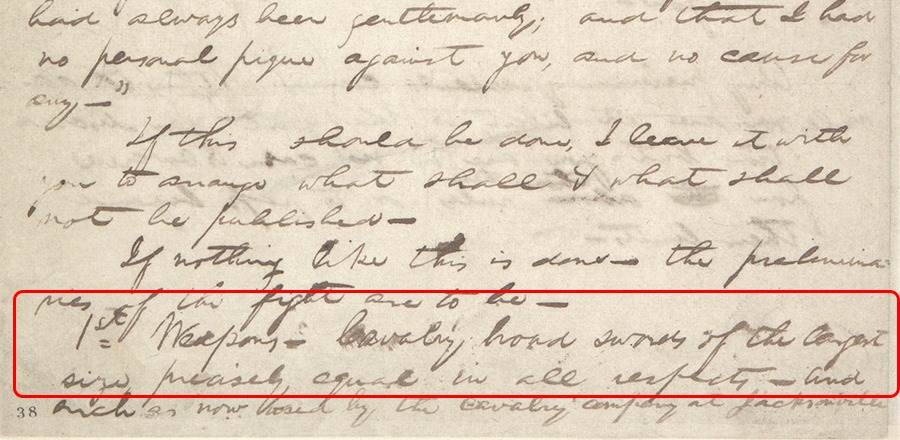 had always been gentlemanly; and that I had
no personal pique against you, and no cause for
any—"
If this should be done, I leave it with
you to arrange what shall & what shall
not be published—
If nothing like this is done— the prelimina-
ries of the fight are to be—
1st Weapons— Cavalry broad swords of the largest
size, precisely equal in all respects— and
such as now used by the cavalry company at Jacksonville
38